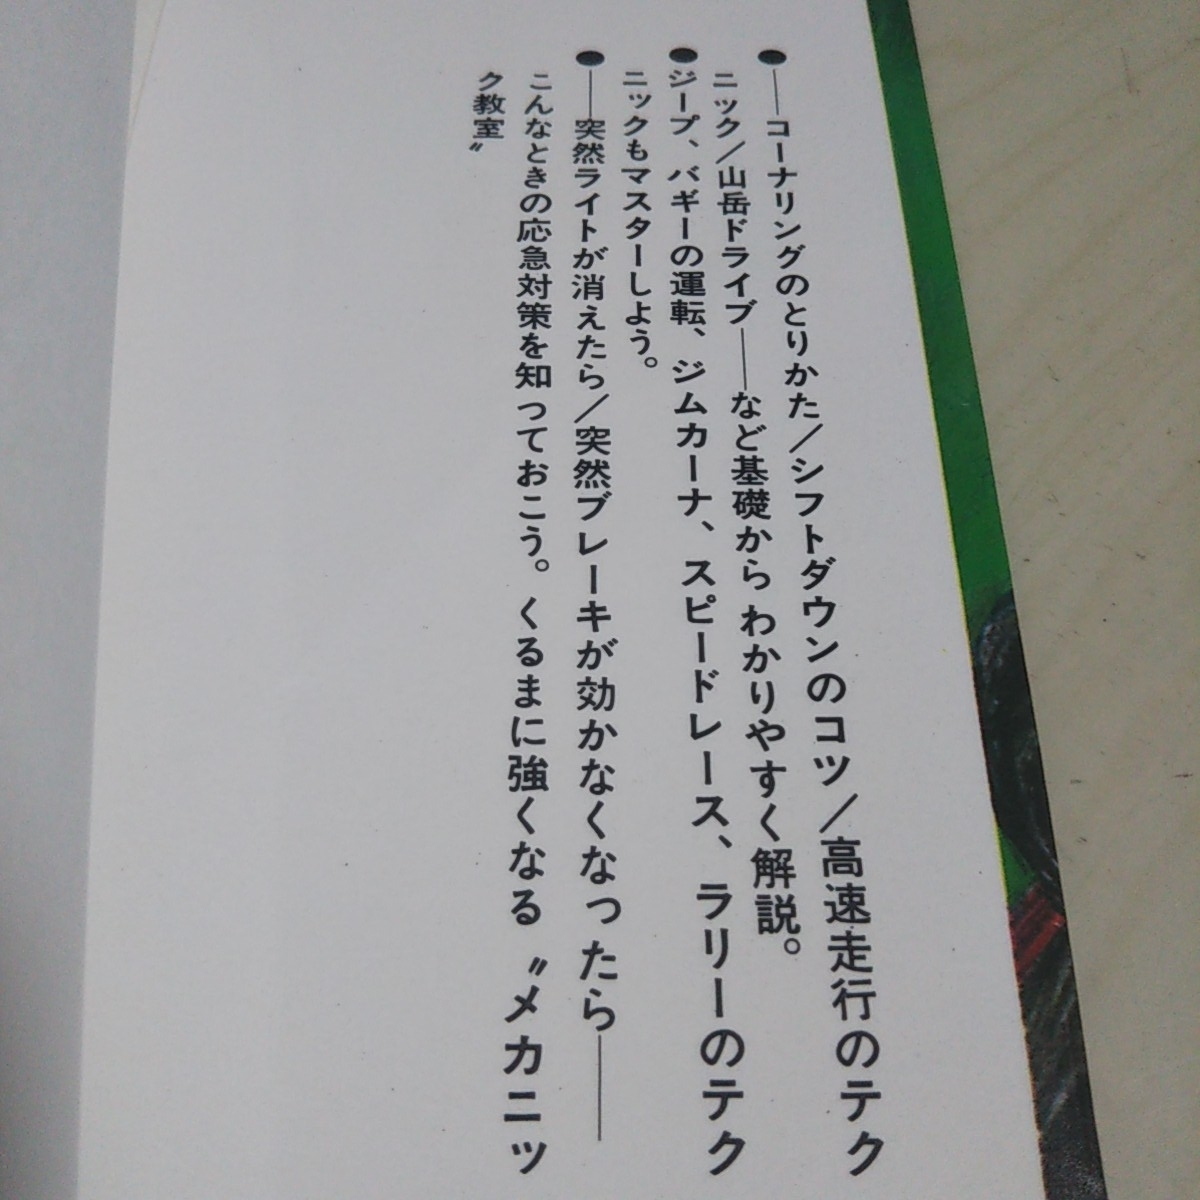 ●──コーナリングのとりかた/シフトダウンのコツ/高速走行のテク
ニック/山岳ドライブ──など基礎からわかりやすく解説。
●ジープ、バギーの運転、ジムカーナ、スピードレース、ラリーのテク
ニックもマスターしよう。
●──突然ライトが消えたら/突然ブレーキが効かなくなったら──
こんなときの応急対策を知っておこう。くるまに強くなる〝メカニッ
ク教室〟